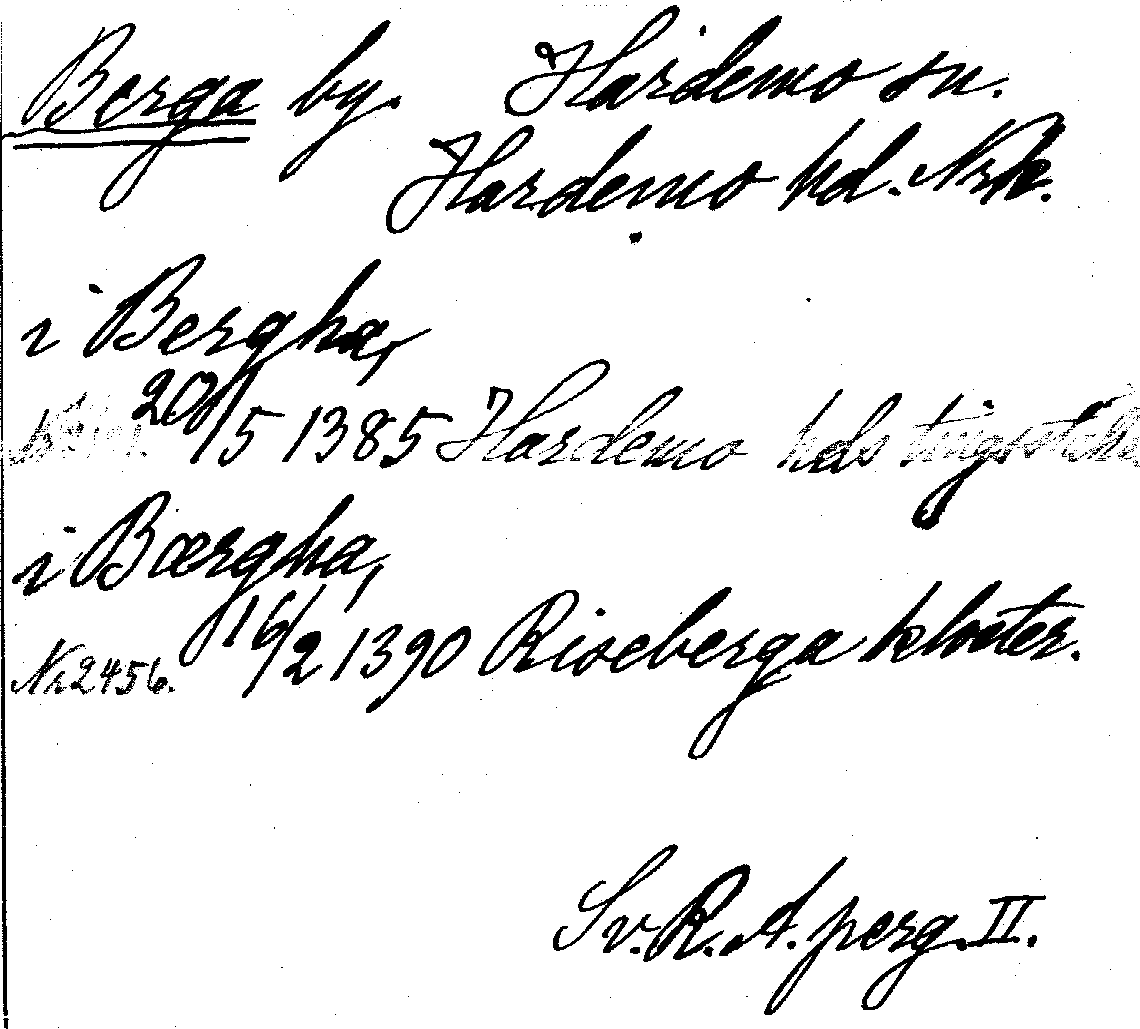 Berga by. Hardemo sn.
Hardemo hd. Nrk.
i Bergha,
20/5 1385 Hardemo hds tingsställe
i Bærgha,
Nr 2456. 16/2 1390 Riseberga kloster.
Sv. R. A. perg. II.